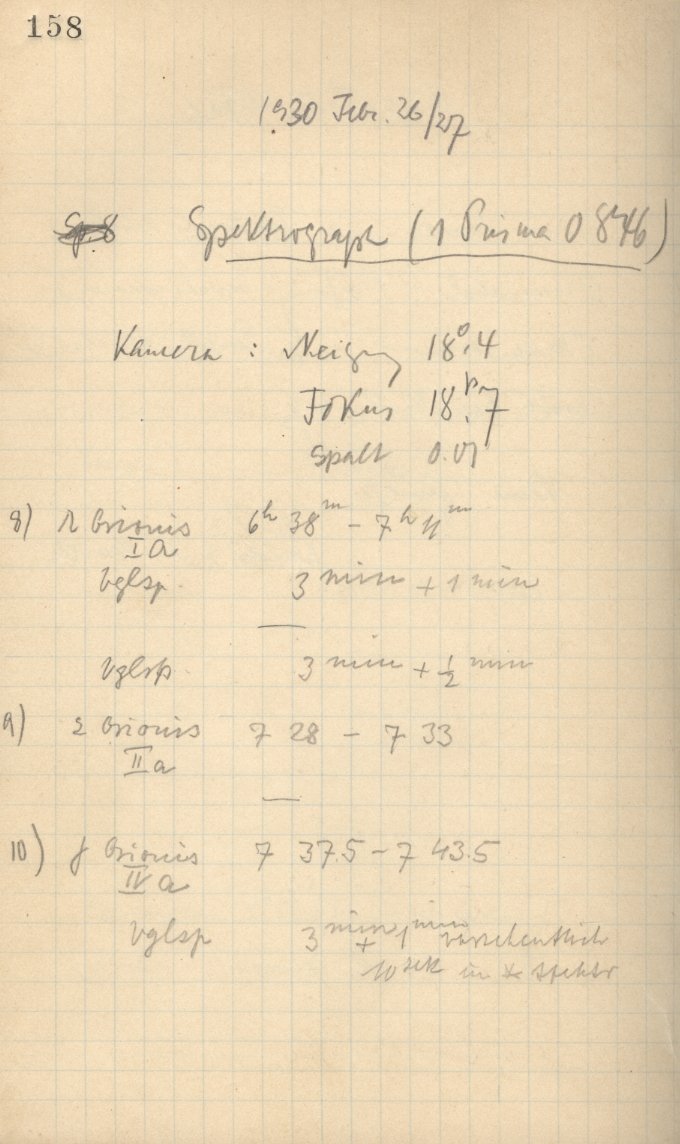 158
1930 Febr. 26/27
Sp. 8 Spektrograph (1 Prisma O 846)
Kamera : Neigung 18°.4
Fokus 18.7
Spalt 0.01
8) Orionis 6h 38m – 7h 11m
Ia
Vglsp. 3 min + 1 min
Vglsp. 3 min + ½ min
9) ε Orionis 7 28 – 7 33
IIa
10) γ Orionis 7 37.5 – 7 43.5
IV a
Vglsp 3 min + 1 min versehentlich
10 sek im * Spektr